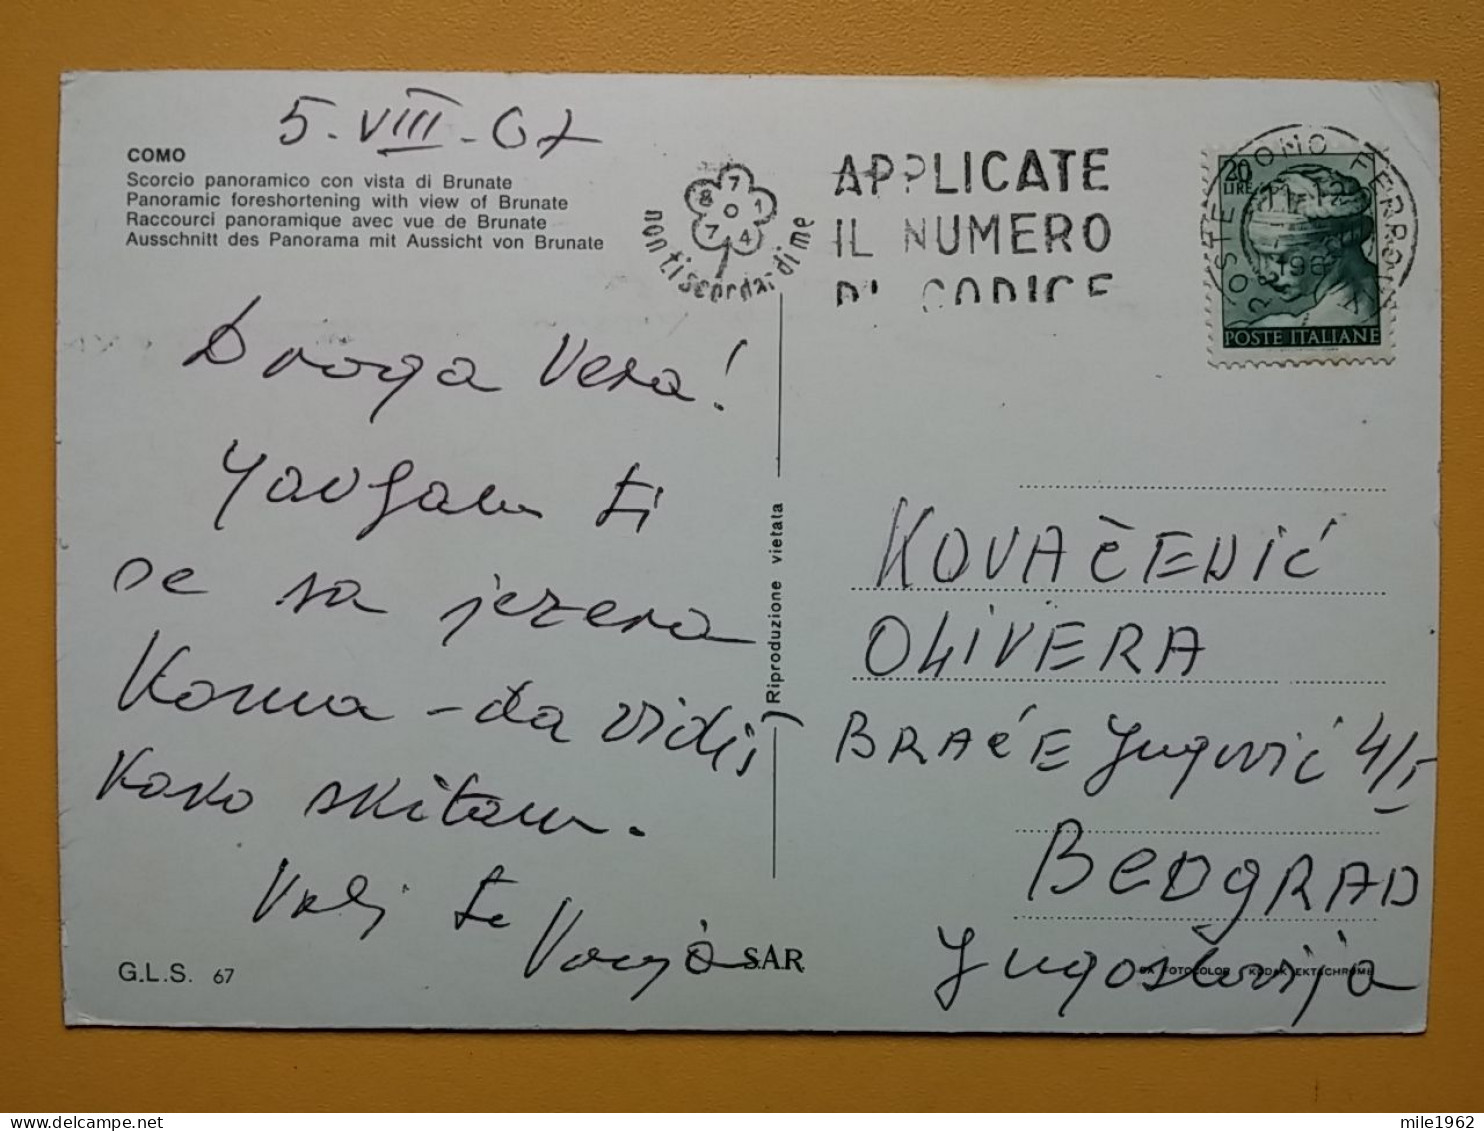 5.VIII.67
COMO
Scorcio panoramico con vista di Brunate
Panoramic foreshortening with view of Brunate
Raccourci panoramique avec vue de Brunate
Ausschnitt des Panorama mit Aussicht von Brunate
Draga Vera!
Javljam ti
se sa jezera
Komo - da vidiš
kako skitam.
Voli te
G.L.S. 67
SAR
Riproduzione vietata
8 7 1 0 7 4
non ti scordar di me
APPLICATE
IL NUMERO
DI CODICE
20
LIRE
POSTE ITALIANE
KOVAČEVIĆ
OLIVERA
BRAĆE Jugović 4/I
BEOgRAD
Jugoslavija
FOTOCOLOR KODAK EKTACHROME
mile1962